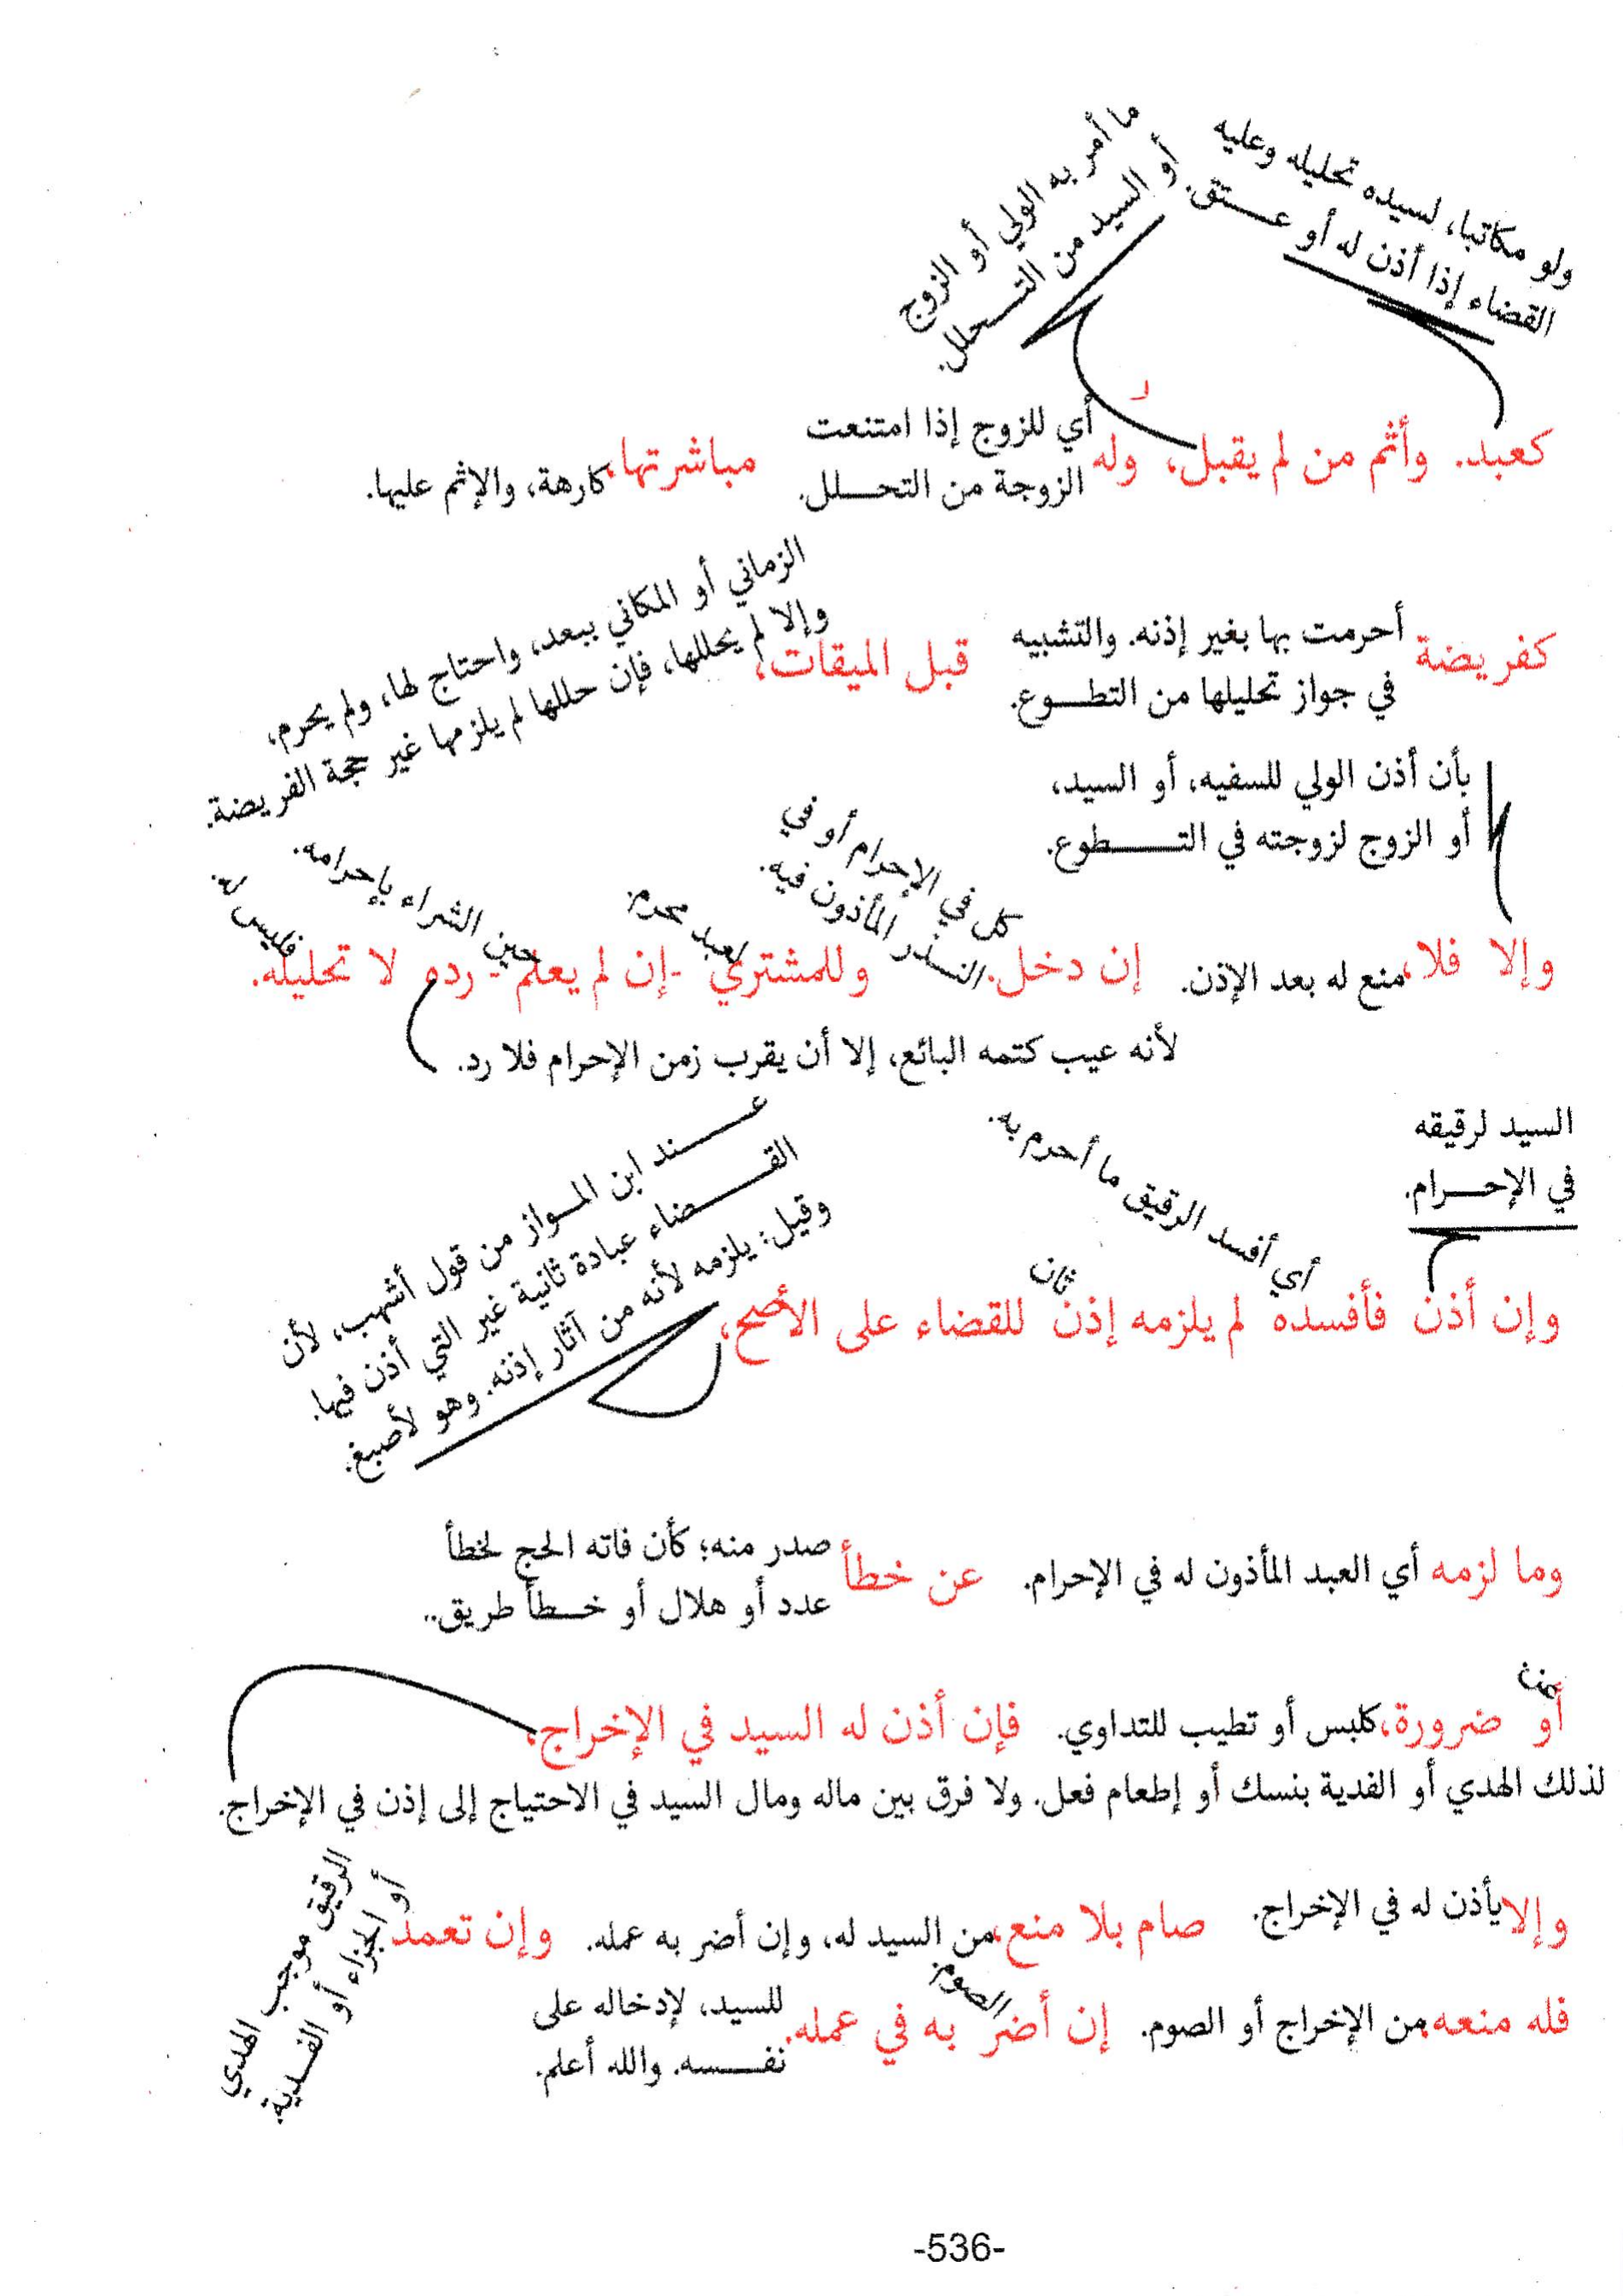 ولو مكاتبا، لسيده تحليله وعليه
القضاء إذا أذن له أو عـتق.
ما أمر به الولي أو الزوج
أو السيد من التـحلل.
كعبد. وأثم من لم يقبل، وله
أي للزوج إذا امتنعت
الزوجة من التحـلل.
مباشرتها، كارهة، والإثم عليها.
كفريضة
أحرمت بها بغير إذنه. والتشبيه
في جواز تحليلها من التطـوع.
قبل الميقات،
الزماني أو المكاني ببعد، واحتاج لها، ولم يحرم،
وإلا لم يحللها، فإن حللها لم يلزمها غير حجة الفريضة.
بأن أذن الولي للسفيه، أو السيد،
أو الزوج لزوجته في التـطوع.
وإلا فلا، منع له بعد الإذن. إن دخل.
كل في الإحرام أو في
النـذر المأذون فيه.
وللمشتري
لعبد محرم.
-إن لم يعلم-
حين الشراء بإحرامه.
رده لا تحليله.
فليس له.
لأنه عيب كتمه البائع، إلا أن يقرب زمن الإحرام فلا رد.
السيد لرقيقه
في الإحـرام.
أي أفسد الرقيق ما أحرم به.
ثان
وإن أذن فأفسده لم يلزمه إذن للقضاء على الأصح،
عـند ابن المـواز من قول أشهب، لأن
القـضاء عبادة ثانية غير التي أذن فيها.
وقيل: يلزمه لأنه من آثار إذنه. وهو لأصبغ.
وما لزمه أي العبد المأذون له في الإحرام. عن خطأ
صدر منه؛ كأن فاته الحج لخطأ
عدد أو هلال أو خـطأ طريق..
عن
أو ضرورة، كلبس أو تطيب للتداوي. فإن أذن له السيد في الإخراج،
لذلك الهدي أو الفدية بنسك أو إطعام فعل. ولا فرق بين ماله ومال السيد في الاحتياج إلى إذن في الإخراج.
وإلا يأذن له في الإخراج. صام بلا منع، من السيد له، وإن أضر به عمله. وإن تعمد
الرقيق موجب الهدي
أو الجزاء أو الفـدية.
فله منعه، من الإخراج أو الصوم. إن أضر به في عمله.
الصوم.
للسيد، لإدخاله على
نفـسه. والله أعلم.
-536-